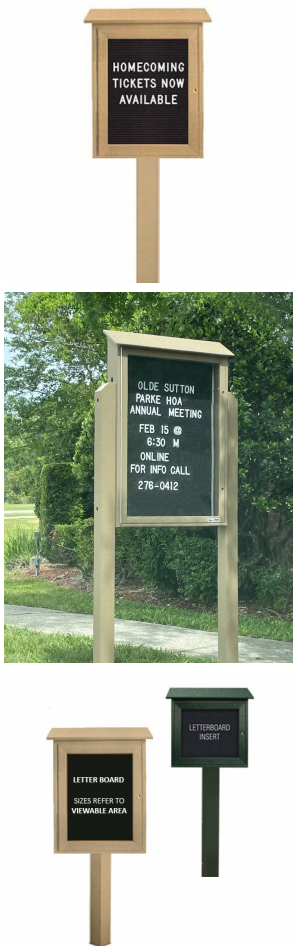 HOMECOMING
TICKETS NOW
AVAILABLE
OLDE SUTTON
PARKE HOA
ANNUAL MEETING
FEB 15 @
6:30 M
ONLINE
FOR INFO CALL
276-0412
LETTER BOARD
SIZES REFER TO
VIEWABLE AREA
LETTERBOARD
INSERT